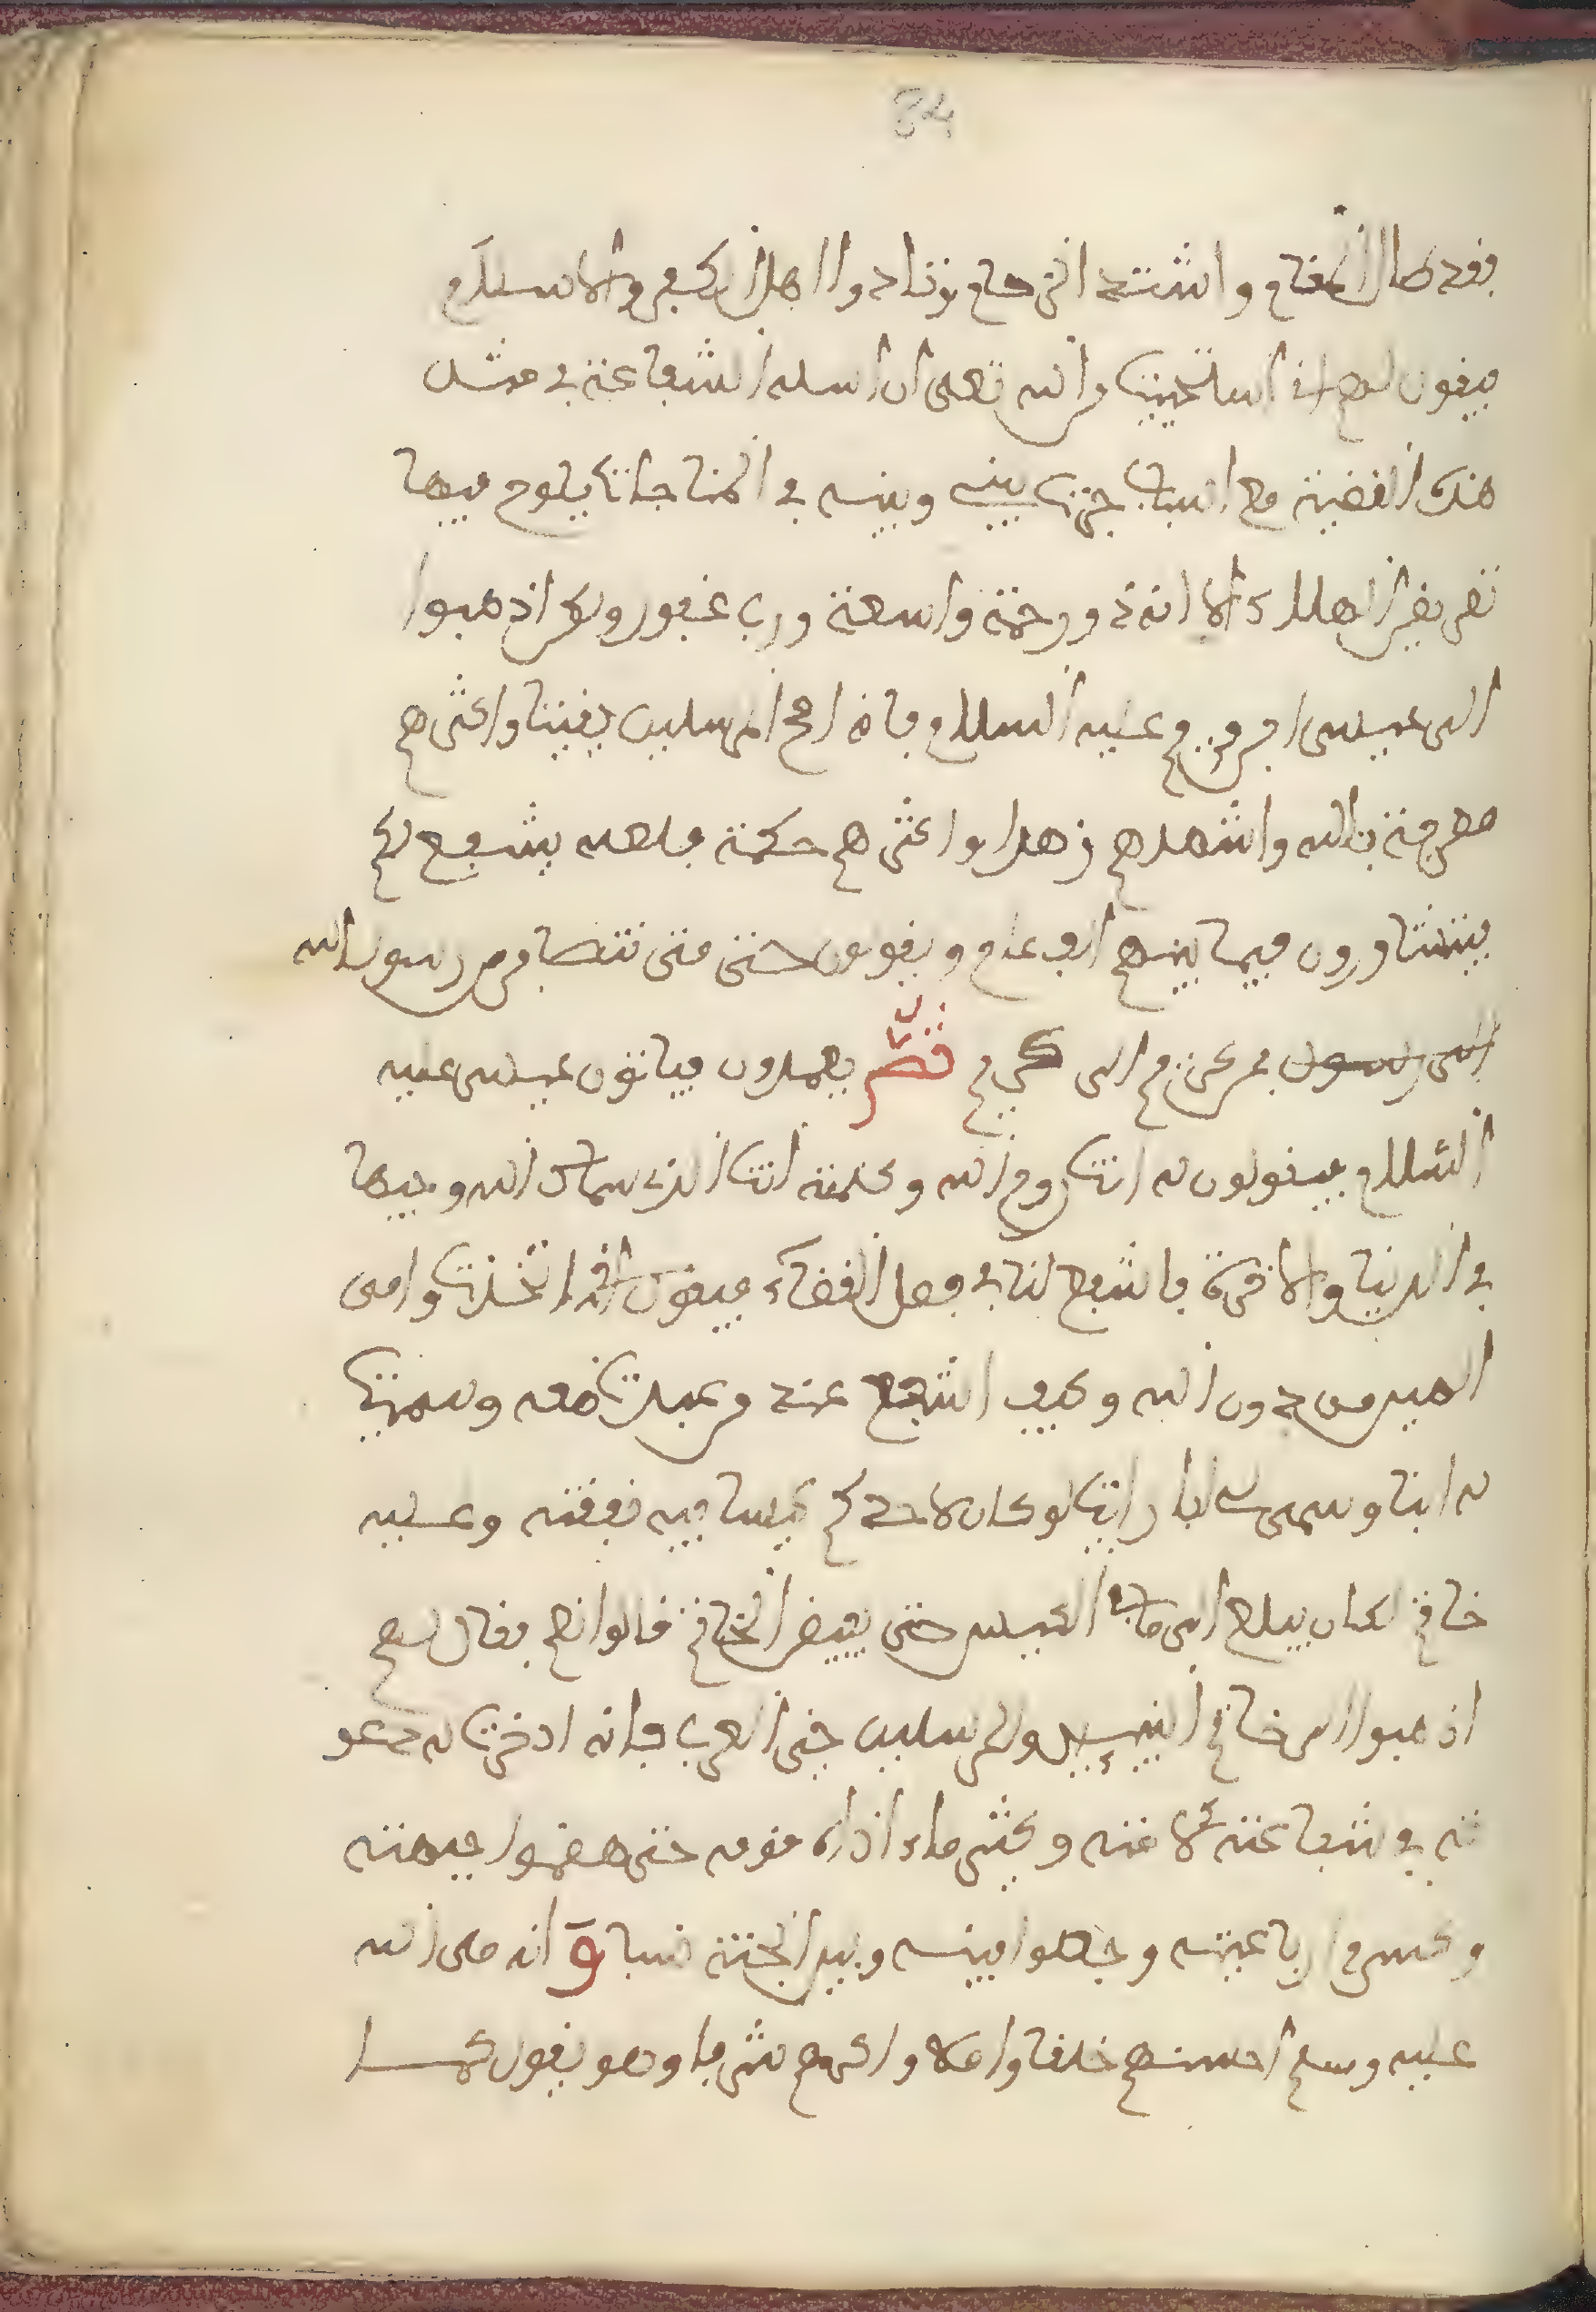 84
فقد طال المقام واشتد الزحام وتنادوا اهل الكفر والاسلام
فيقول لهم اني استحييت من الله تعلى ان اسله الشفاعة في مثل
هذه القضية مع اسباب جرت بيني وبينه في المناجات يلوح فيها
تعريض الهلاك الا انه ذو رحمة واسعة ورب غفور ولكن اذهبوا
الى عيسى ابن مريم عليه السلام فانه اصح المرسلين يقينا واكثرهم
معرفة بالله واشدهم زهدا واكثرهم حكمة فلعله يشفع لكم
فيتشاورون فيما بينهم الف عام ويقولون حتى متى نتصافر من رسول الله
الى رسول من عزم الى كريم قصر يعمدون فياتون عيسى عليه
السلام فيقولون له انت روح الله وكلمته انت الذي سماك الله وجيها
في الدنيا والاخرة فاشفع لنا في فصل القضاء فيقول لقد اتخذت وامي
الهين من دون الله وكيف اشفع عند من عبدت معه وسميت
له ابنا وسمي لي ابا رايت لو كان لاحدكم كيسا فيه نفقته وعليه
خاتم لكان يبلغ الى ما في الكيس حتى يفيض الخاتم قالوا نعم فقال لهم
اذهبوا الى خاتم النبيين والمرسلين خير العرب فانه ادخرت له دعو
ته في شفاعته لامته وكثير ماء اذاه قومه حتى هشموا جبهته
وكسروا رباعيته وجعلوا بينه وبين الجنة نسبا و انه صلى الله
عليه وسلم احسنهم خلقا واصلا واكرمهم شرفا وهو يقول كما